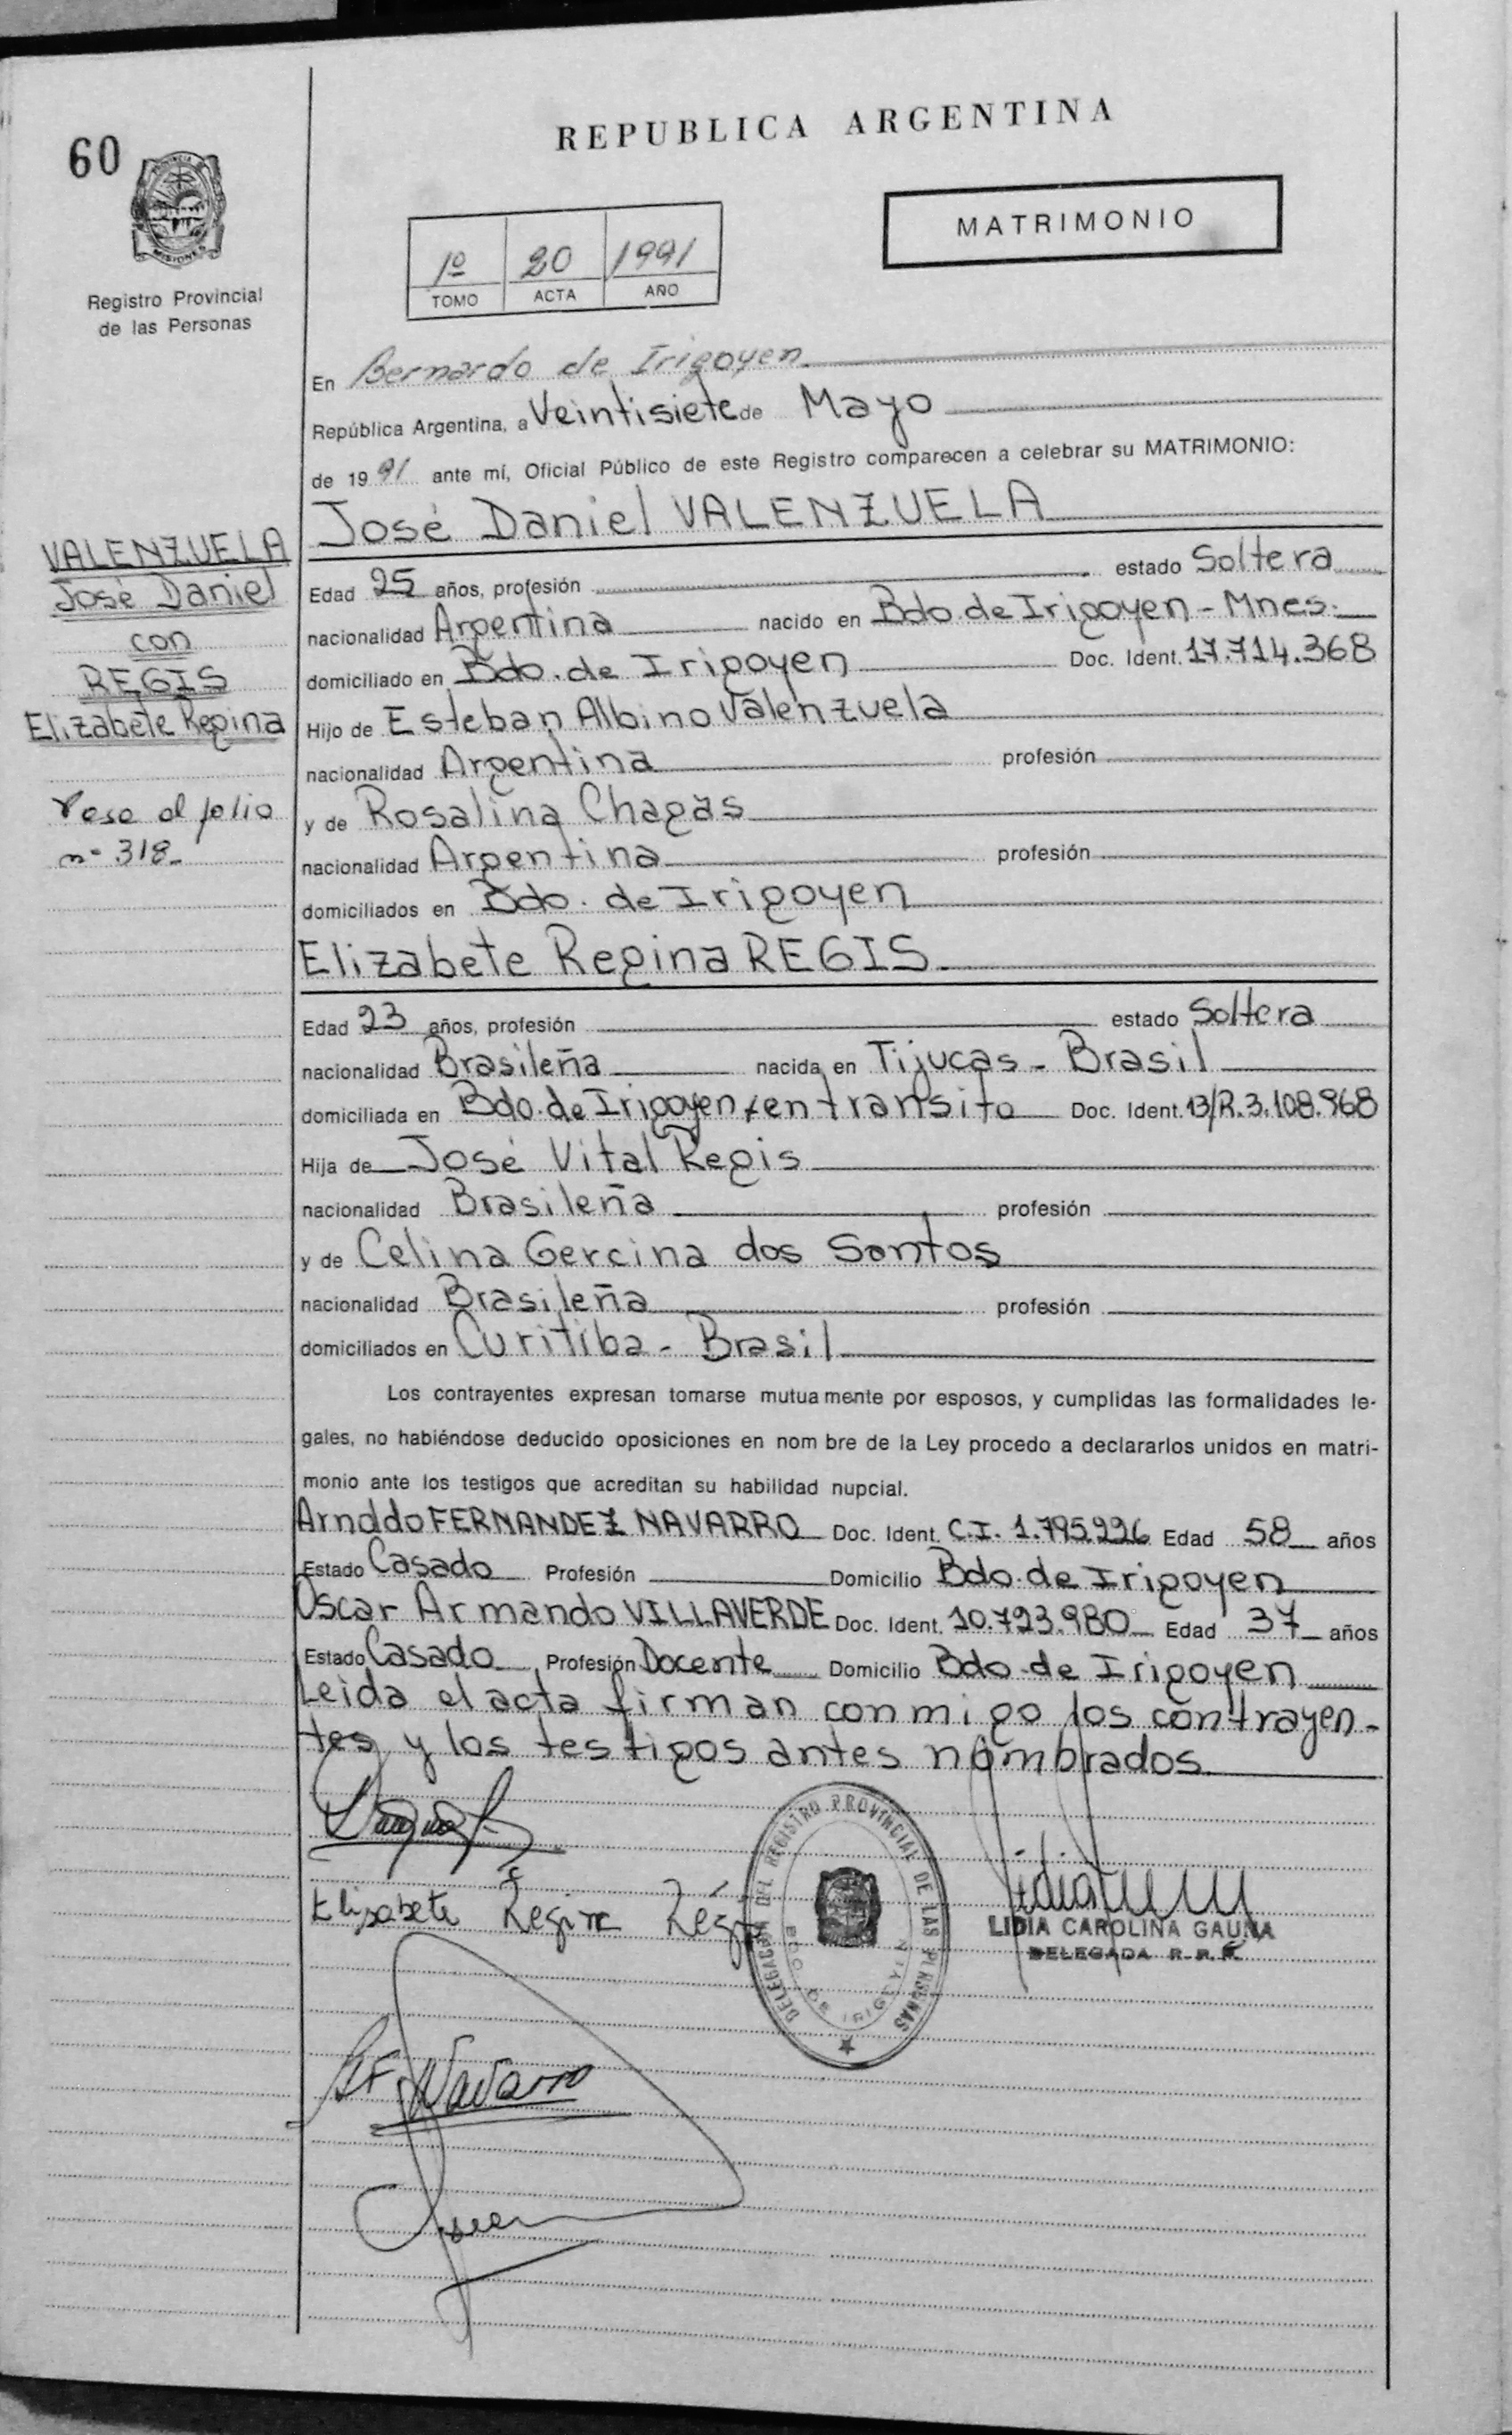 REPUBLICA ARGENTINA
60
PROVINCIA
MISIONES
Registro Provincial
de las Personas
MATRIMONIO
1º 20 1991
TOMO ACTA AÑO
En Bernardo de Irigoyen
República Argentina, a Veintisiete de Mayo
de 1991 ante mí, Oficial Público de este Registro comparecen a celebrar su MATRIMONIO:
José Daniel VALENZUELA
Edad 25 años, profesión estado Soltera
nacionalidad Argentina nacido en Bdo. de Irigoyen - Mnes.
domiciliado en Bdo. de Irigoyen Doc. Ident. 17.714.368
Hijo de Esteban Albino Valenzuela
nacionalidad Argentina profesión
y de Rosalina Chagas
nacionalidad Argentina profesión
domiciliados en Bdo. de Irigoyen
Elizabete Regina REGIS
Edad 23 años, profesión estado Soltera
nacionalidad Brasileña nacida en Tijucas - Brasil
domiciliada en Bdo. de Irigoyen, en transito Doc. Ident. 13/R.3.108.968
Hija de José Vital Regis
nacionalidad Brasileña profesión
y de Celina Gercina dos Santos
nacionalidad Brasileña profesión
domiciliados en Curitiba - Brasil
Los contrayentes expresan tomarse mutuamente por esposos, y cumplidas las formalidades le-
gales, no habiéndose deducido oposiciones en nom bre de la Ley procedo a declararlos unidos en matri-
monio ante los testigos que acreditan su habilidad nupcial.
Arnoldo FERNANDEZ NAVARRO Doc. Ident. C.I. 1.795.226 Edad 58 años
Estado Casado Profesión Domicilio Bdo. de Irigoyen
Oscar Armando VILLAVERDE Doc. Ident. 10.793.980 Edad 37 años
Estado Casado Profesión Docente Domicilio Bdo. de Irigoyen
Leida el acta firman conmigo los contrayen-
tes y los testigos antes nombrados
VALENZUELA
José Daniel
con
REGIS
Elizabete Regina
Pasa al folio
nº 318-
Elisabete Regina Régis
DELEGACION DEL REGISTRO PROVINCIAL DE LAS PERSONAS
BDO. DE IRIGOYEN
LIDIA CAROLINA GAUNA
DELEGADA R. P. P.
AF Navarro